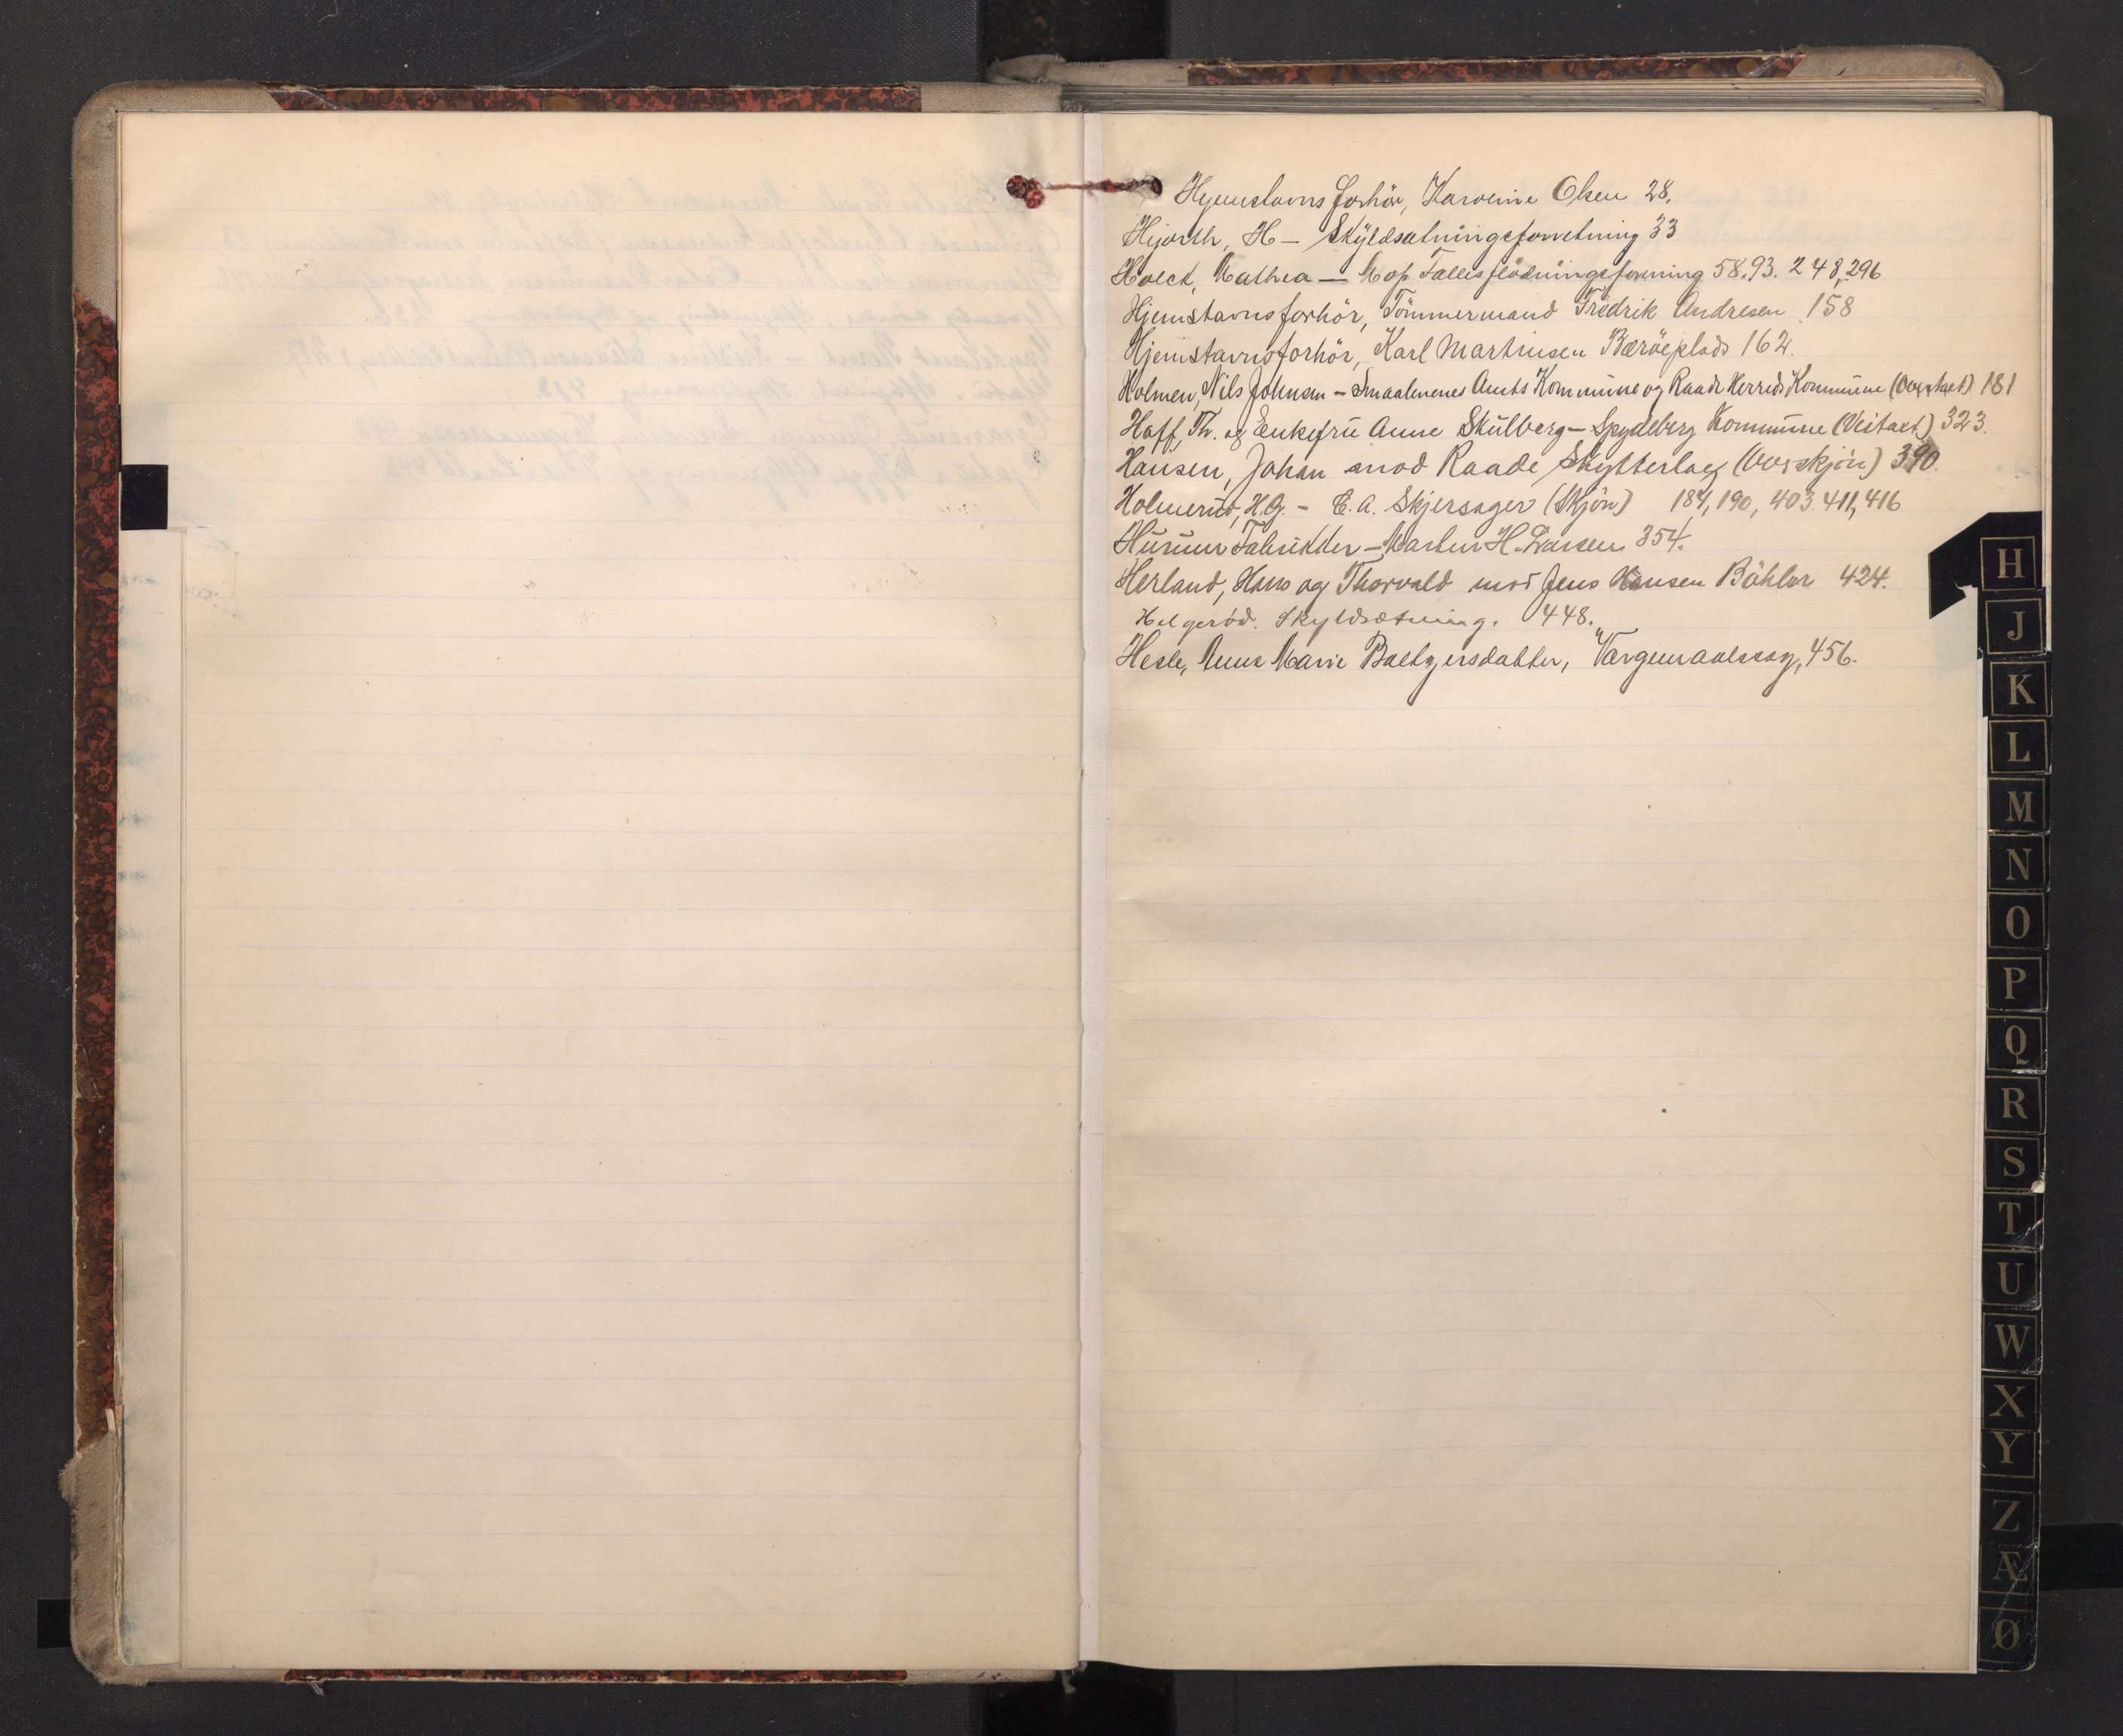 Hjemstavns forhör, Karoline Olsen 28.
Hijorth, H — Skÿldsætningsforretning 33
Holck, Mathea — Mos. Fællesflödningsforening 58. 93. 248, 296
Hjemstavnsforhör, Tömmermand Fredrik Andresen 158
Hjemstavnsforhör, Karl Martinsen Bæröeplads 162.
Holmen, Nils Johnsen – Smaalenenes Amts Kommune og Raade Herreds Kommune (Overtaxt) 181
Haff, Th. og Enkefru Anne Skulberg – Spydeberg Kommune (Veitaxt) 323.
Hansen, Johan mod Raade Skytterlag (Overskjön) 390.
Holmerud, H.G. – E. A. Skjersager (Skjön) 184, 190, 403. 411, 416
Hurum Fabrikker – Martin H. Larsen 354.
Herland, Hans og Thorvald mod Jens Hansen Böhler 424.
Helgeröd. Skyldsætning. 448.
Hesle, Anne Marie Baltzersdatter, Værgemaalssag, 456.
H
J
K
L
M
N
O
P
Q
R
S
T
U
W
X
Y
Z
Æ
Ø